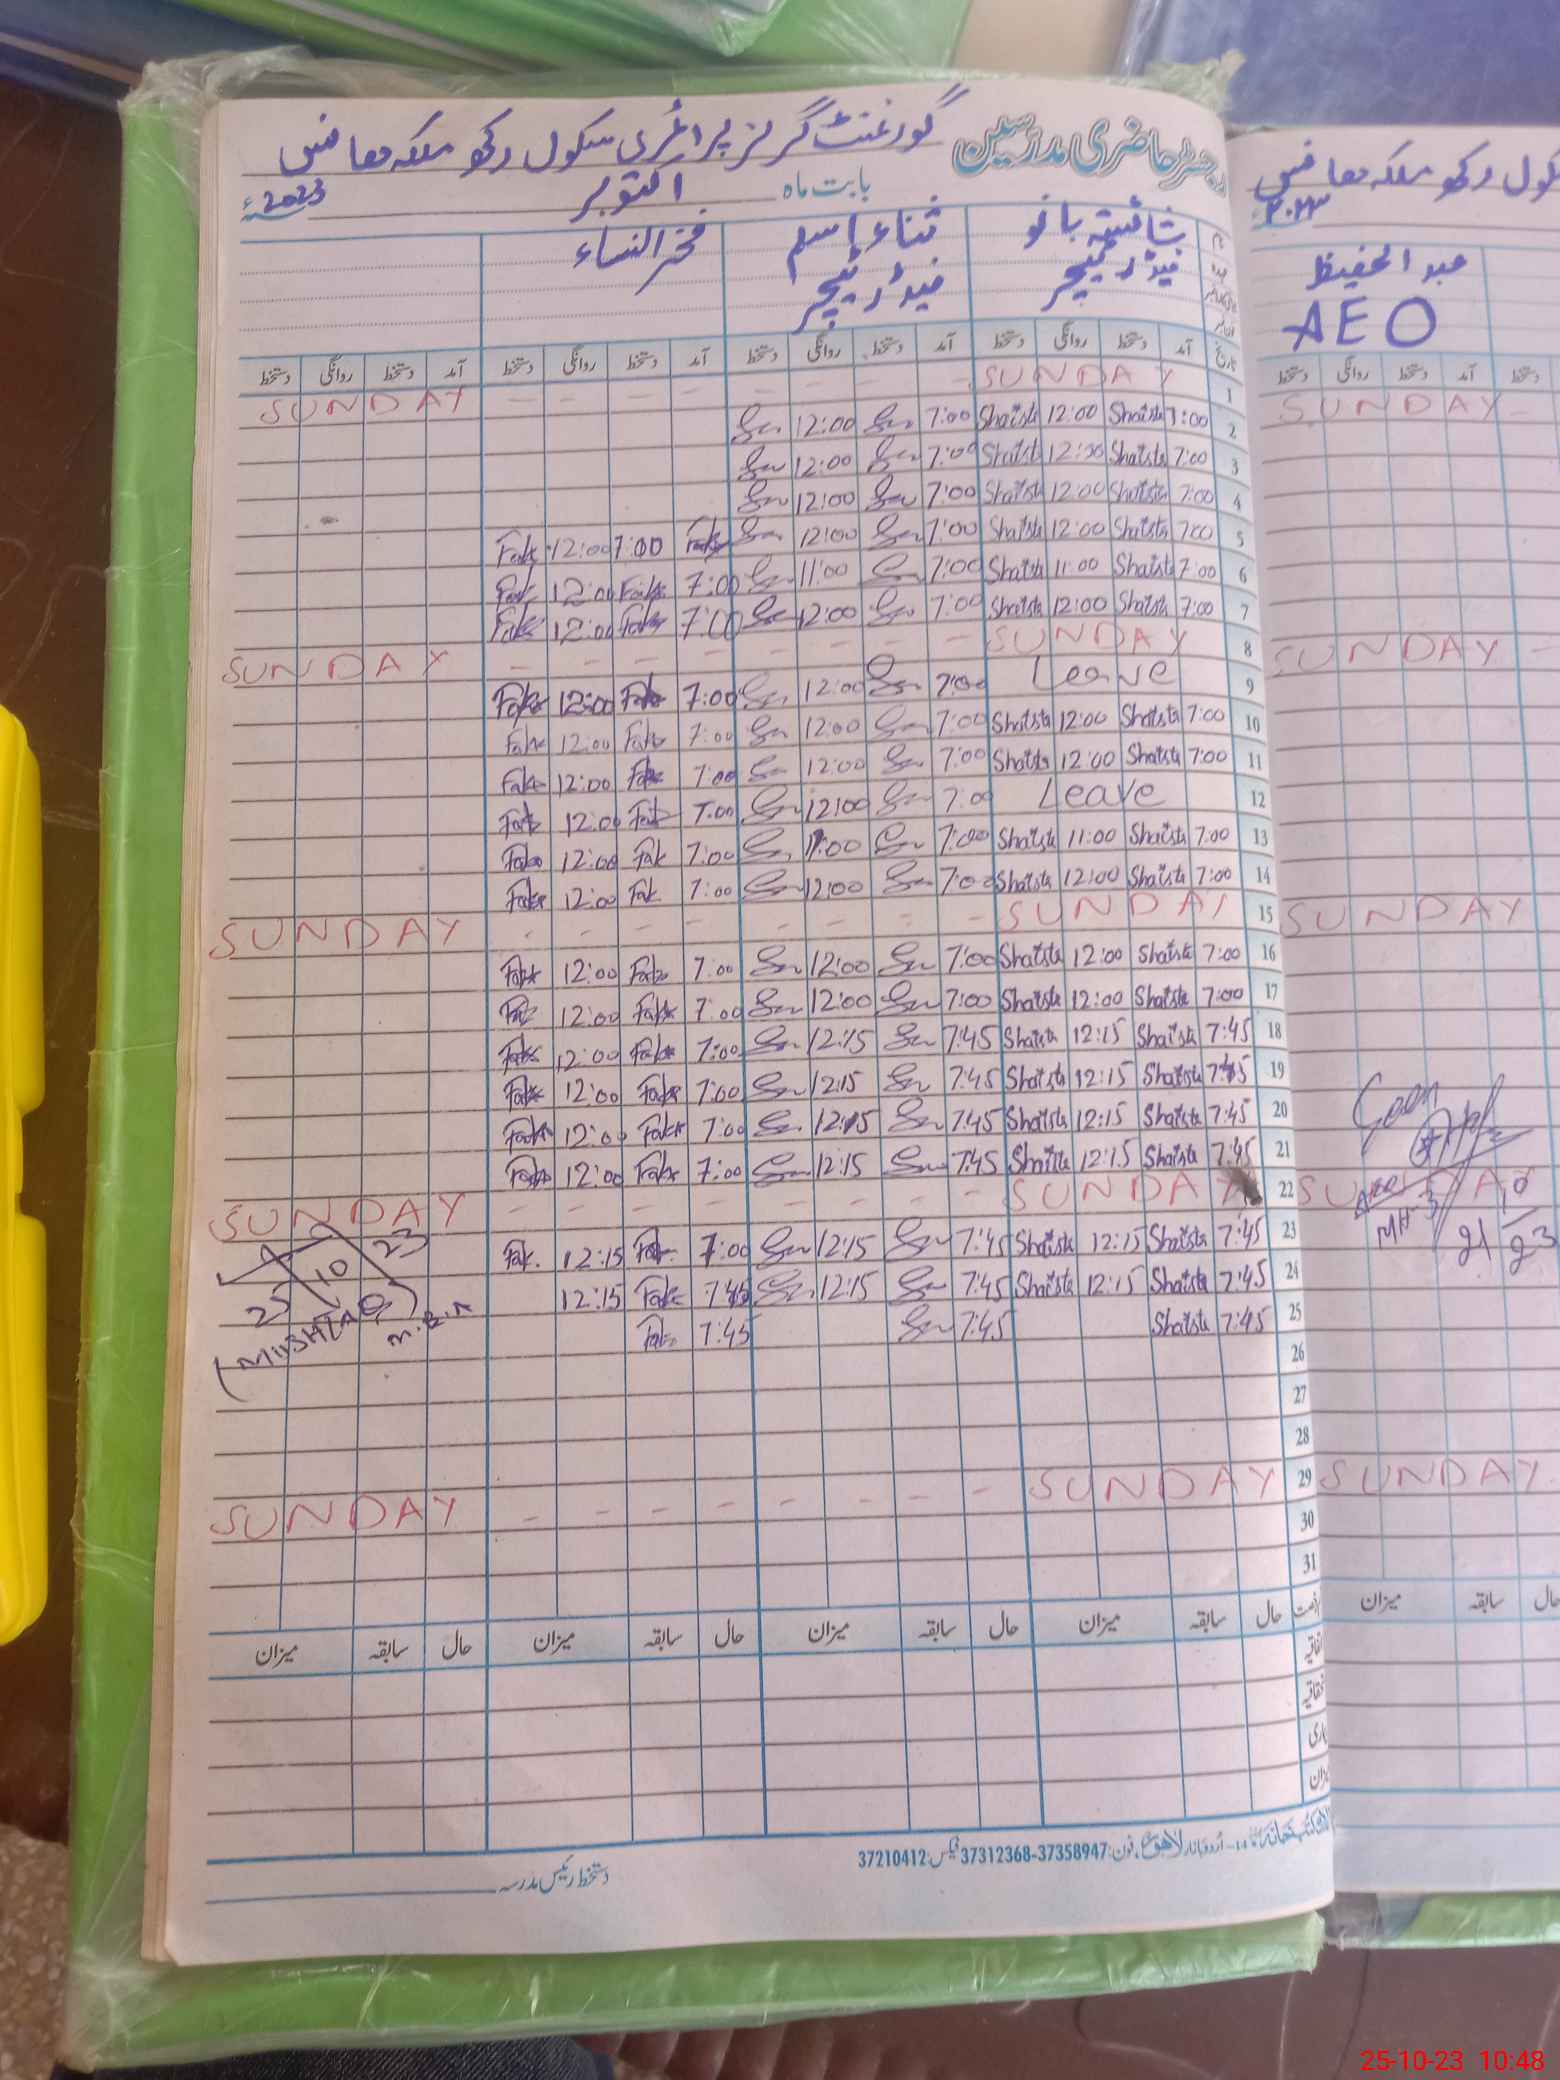 رجسٹر حاضری مدرسین گورنمنٹ گرلز پرائمری سکول رکھ ملکہ معافی
بابت ماہ اکتوبر 2023ء
نام شائستہ بانو ثناء اسلم فخر النساء
عہدہ فیڈر ٹیچر فیڈر ٹیچر
تاریخ آمد دستخط روانگی دستخط آمد دستخط روانگی دستخط آمد دستخط روانگی دستخط آمد دستخط روانگی دستخط
1 SUNDAY - - - - - - - - SUNDAY
2 7:00 Shaista 12:00 Shaista 7:00 12:00
3 7:00 Shaista 12:00 Shaista 7:00 12:00
4 7:00 Shaista 12:00 Shaista 7:00 12:00
5 7:00 Shaista 12:00 Shaista 7:00 12:00 Fak 7:00 12:00 Fak
6 7:00 Shaista 11:00 Shaista 7:00 11:00 7:00 Fak 12:00 Fak
7 7:00 Shaista 12:00 Shaista 7:00 12:00 7:00 Fak 12:00 Fak
8 SUNDAY - - - - - - - - SUNDAY
9 Leave 7:00 12:00 7:00 Fak 12:00 Fak
10 7:00 Shaista 12:00 Shaista 7:00 12:00 7:00 Fak 12:00 Fak
11 7:00 Shaista 12:00 Shaista 7:00 12:00 7:00 Fak 12:00 Fak
12 Leave 7:00 12:00 7:00 Fak 12:00 Fak
13 7:00 Shaista 11:00 Shaista 7:00 11:00 7:00 Fak 12:00 Fak
14 7:00 Shaista 12:00 Shaista 7:00 12:00 7:00 Fak 12:00 Fak
15 SUNDAY - - - - - - - - SUNDAY
16 7:00 Shaista 12:00 Shaista 7:00 12:00 7:00 Fak 12:00 Fak
17 7:00 Shaista 12:00 Shaista 7:00 12:00 7:00 Fak 12:00 Fak
18 7:45 Shaista 12:15 Shaista 7:45 12:15 7:00 Fak 12:00 Fak
19 7:45 Shaista 12:15 Shaista 7:45 12:15 7:00 Fak 12:00 Fak
20 7:45 Shaista 12:15 Shaista 7:45 12:15 7:00 Fak 12:00 Fak
21 7:45 Shaista 12:15 Shaista 7:45 12:15 7:00 Fak 12:00 Fak
22 SUNDAY - - - - - - - - SUNDAY
23 7:45 Shaista 12:15 Shaista 7:45 12:15 7:00 Fak 12:15 Fak.
24 7:45 Shaista 12:15 Shaista 7:45 12:15 7:45 Fak 12:15
25 7:45 Shaista 7:45 7:45 Fak
26
27
28
29 SUNDAY - - - - - - - - SUNDAY
30
31
25 10 23
حال سابقہ میزان حال سابقہ میزان حال سابقہ میزان حال سابقہ میزان
اردو بازار لاہور فون: 37312368-37358947 فیکس: 37210412
دستخط رئیس مدرسہ
سکول رکھ ملکہ معافی
۲۰۲۳ء
عبد الحفیظ
AEO
دستخط آمد دستخط روانگی دستخط
SUNDAY -
SUNDAY -
SUNDAY
SUNDAY
MH-3
21 10 23
SUNDAY
حال سابقہ میزان
25-10-23 10:48